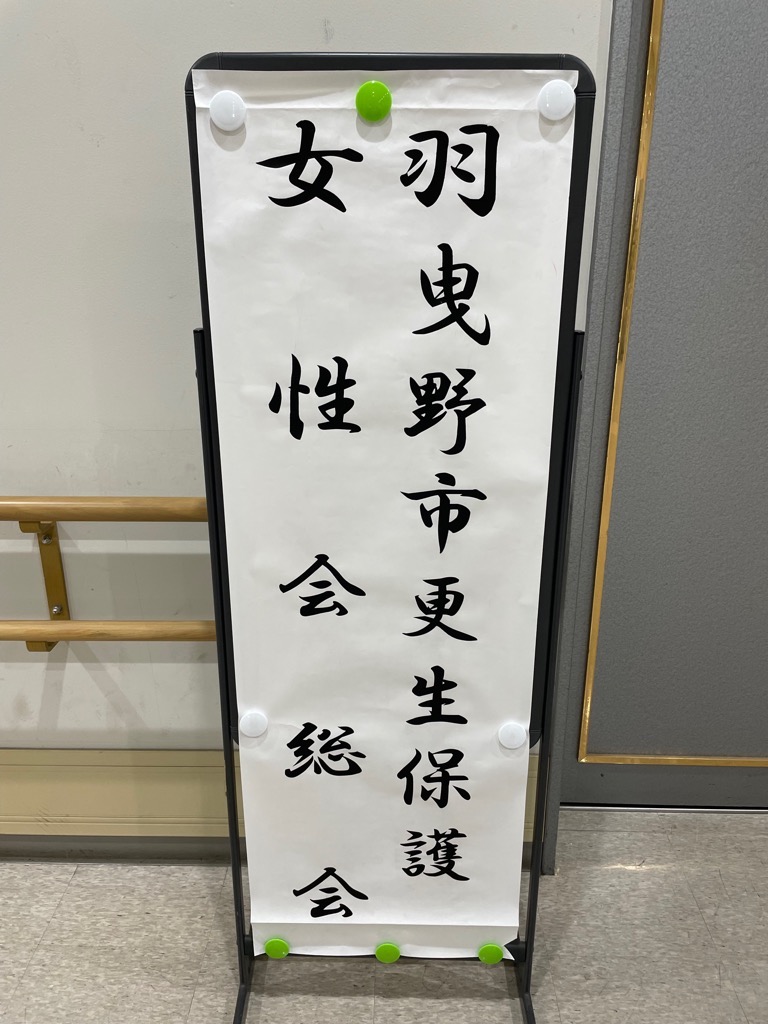 羽曳野市更生保護
女性会総会